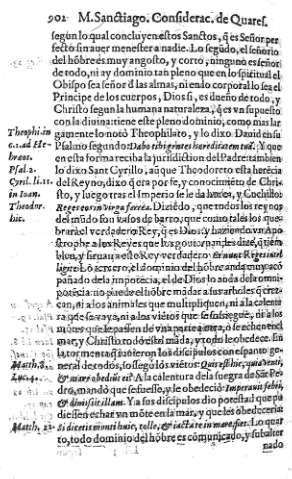 902 M. Sanctiago. Considerac. de Quares.
según lo qual concluyen estos Sanctos, q̃ es Señor per
fecto sin auer menester a nadie. Lo segũdo, el señorio
del hõbre es muy angosto, y corto, ninguno es señor
de todo, ni ay dominio tan pleno que en lo spiritual el
Obispo sea señor d̃ las almas, ni en lo corporal lo sea el
Principe de los cuerpos, Dios si, es dueño de todo, y
Christo segun la humana naturaleza, q̃ es vn supuesto
con la diuina tiene este pleno dominio, como mas lar
Theophi. in gamente lo notò Theophilato, y lo dixo Dauid en su
c.1. ad He- Psalmo segundo: Dabo tibi gentes hereditatem tuã. Y que
bræos. en esta forma reciba la jurisdiction del Padre tambien
Psal. 2. lo dixo Sant Cyrillo, aũ que Theodoreto esta herẽcia
Cyri. li. 11. del Reyno, dixo q̃ era por fe, y conocimiẽto de Chri-
in Ioan. sto, y luego tras el imperio se le da luego, y Cuchillo:
Theodor. Reges eos in virga ferrea. Diziẽdo, que todos los reynos
hic. del mũdo son vasos de barro, que como tales los que-
brarà el verdadero Rey, q̃ es Dios: y haziendo vn Apo
strophe a los Reyes que los gouiernan les dize, q̃ tiem
blen, y siruan a este Rey verdadero: Et nunc Reges intel
ligite. Lo tercero, el dominio del hõbre anda muy acõ
pañado de la impotẽcia, el de Dios lo anda de la omni
potẽcia: no puede el hõbre mãdar a sus arboles q̃ crez-
can, ni a los animales que multipliquen, ni a la calentu
ra que se vaya, ni a los viẽtos que se sosieguen, ni a los
mõtes que le passen de vna parte a otra, o se echen en el
mar, y Christo todo esto mãda, y todo le obedece. En
la tormenta q̃ tuuieron los discipulos con espanto ge-
Matth. 8. neral de todos, sossegò los viẽtos: Quis est hic, quia venti,
Luc. 4. & mare obediũt ei? A la calentura de la suegra de Sãt Pe-
dro, mandò que se fuesse, y le obedeciò: Imperauit febri,
& dimisit illam. Y a sus discipulos dio potestad que pu
diessen echar vn mõte en la mar, y que les obedeceria:
Matth. 21. Si dicetis monti huic, tolle, & iacta te in mare, fiet. Lo quar
to, todo dominio del hõbre es comunicado, y subalter
nado